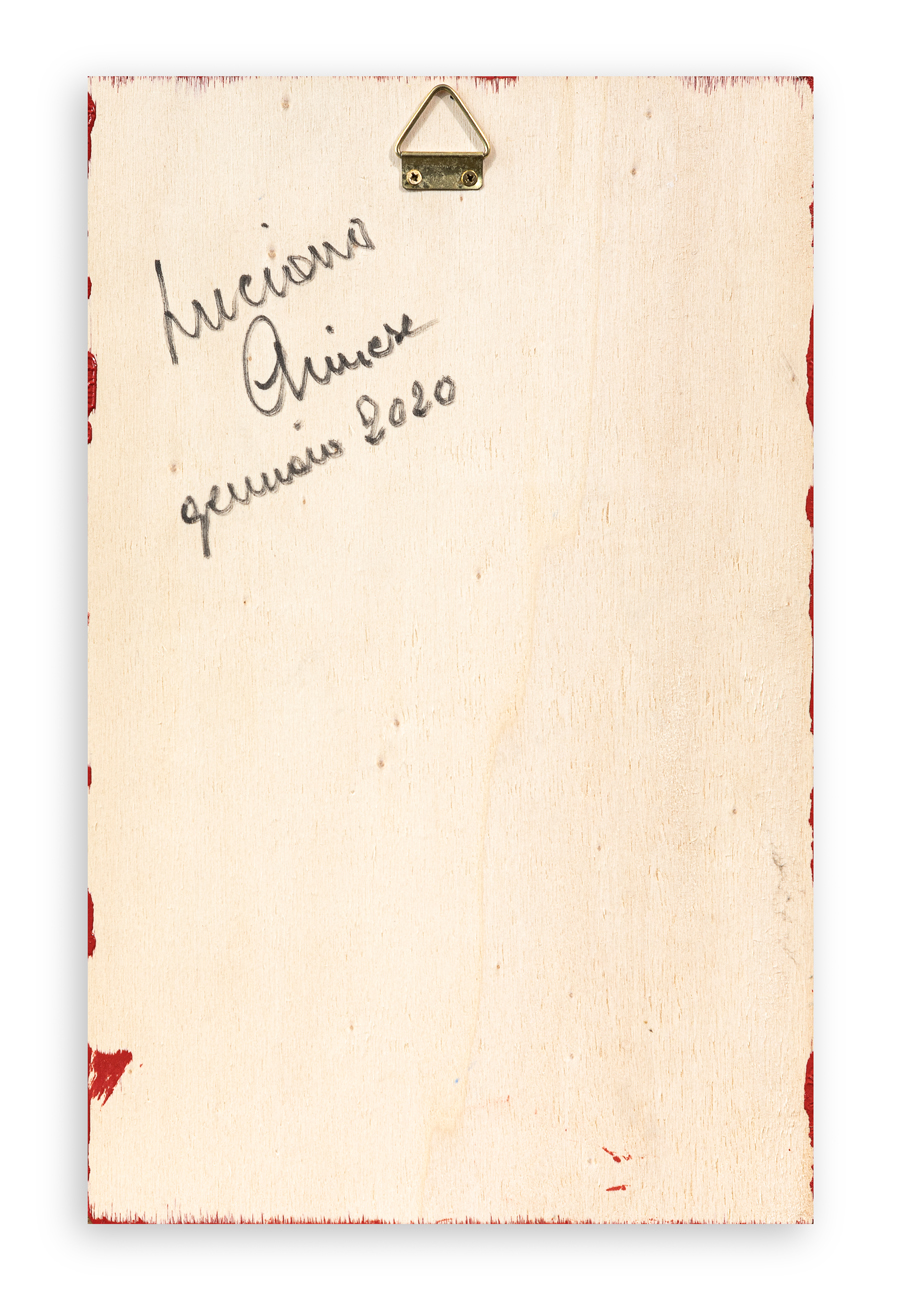 Luciano
Chinese
gennaio 2020